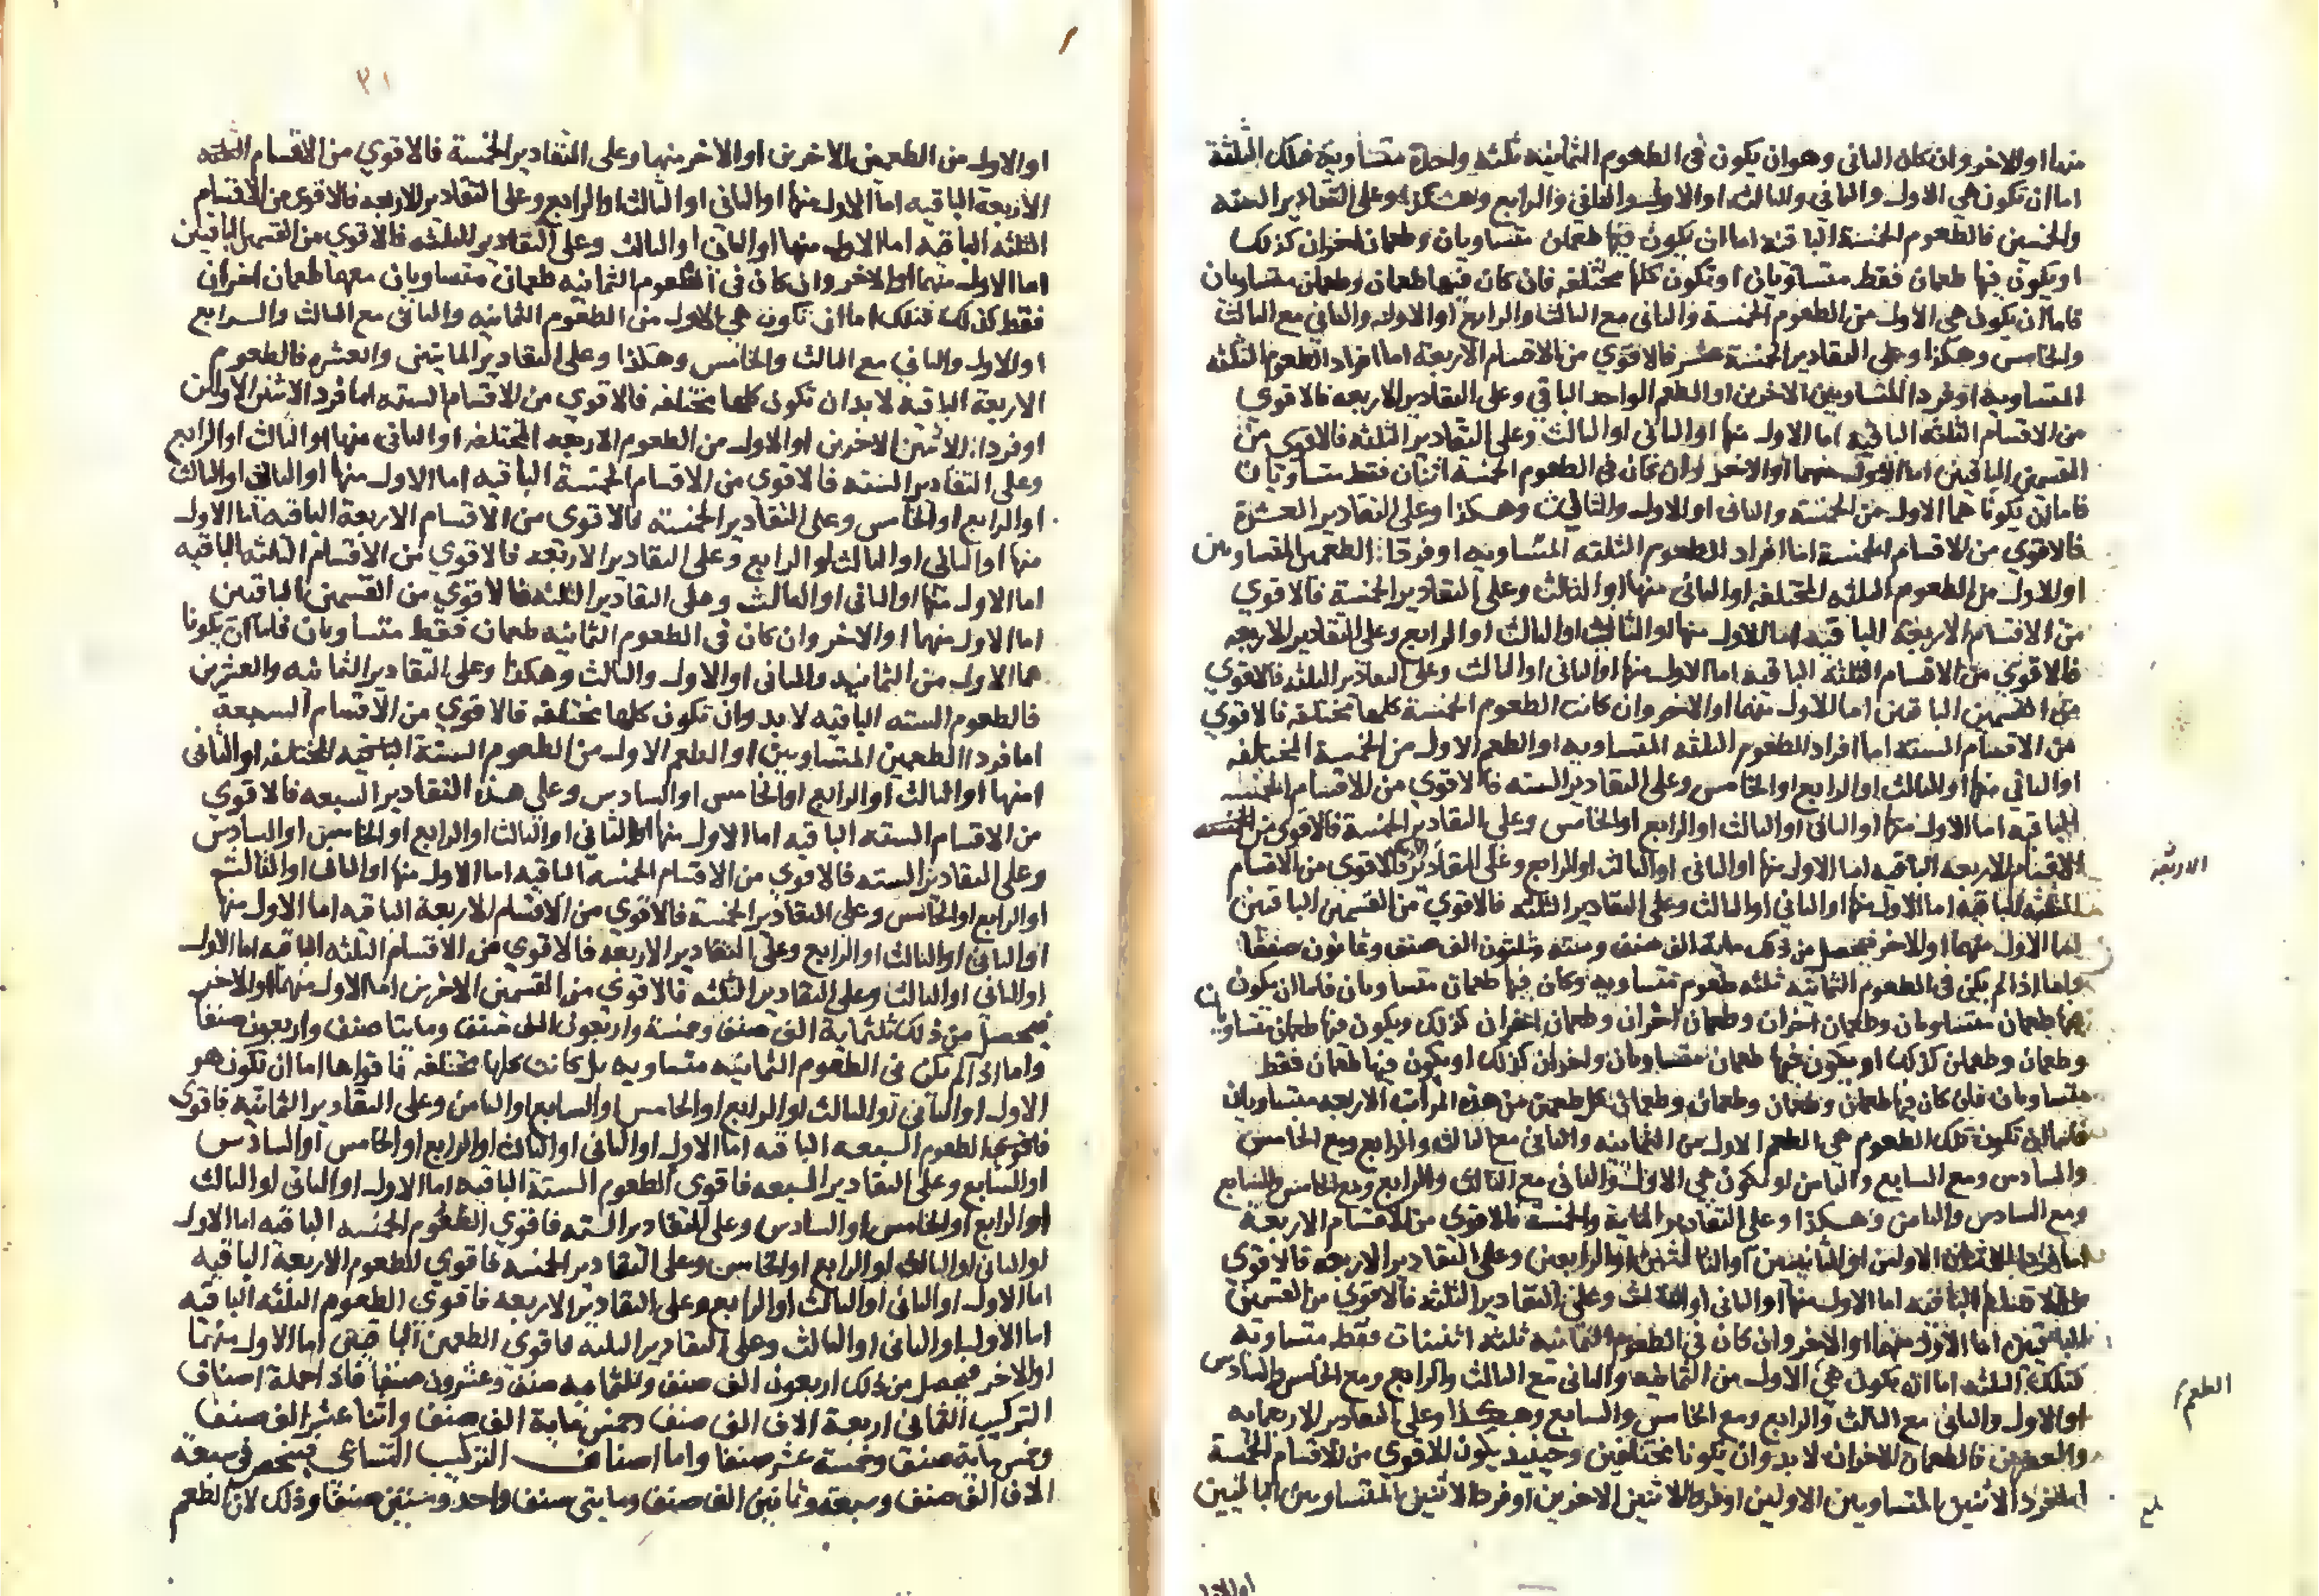 منها او الاخر وان كان الثانى وهو ان يكون فى الطعوم الثمانيه ثلثه واحدة متساوية فتلك الثلثة
اما ان تكون هى الاول والثانى والثالث او الاول والثانى والرابع وهكذا وعلى التقادير الستة
والخمسين فالطعوم الخمسة الباقية اما ان يكون فيها طعمان متساويان وطعمان اخران كذلك
او يكون فيها طعمان فقط متساويان او تكون كلها مختلفه فان كان فيها طعمان وطعمان متساويان
فاما ان يكون هى الاول من الطعوم الخمسة والثانى مع الثالث والرابع او الاول والثانى مع الثالث
والخامس وهكذا وعلى التقادير الخمسة عشر فالاقوي من الاقسام الاربعة اما افراد الطعوم الثلثه
المتساويه او فردا المتساويين الاخرين او الطعم الواحد الباقي وعلى التقادير الاربعه فالاقوي
من الاقسام الثلثه الباقيه اما الاول منها او الثانى او الثالث وعلى التقادير الثلثه فالاقوي من
القسمين الباقيين اما الاول منهما او الاخر وان كان فى الطعوم الخمسة اثنان فقط متساويان
فاما ان يكونا هما الاول من الخمسة والثانى او الاول والثالث وهكذا وعلى التقادير العشرة
فالاقوي من الاقسام الخمسة اما افراد الطعوم الثلثه المتساويه او فردا الطعمين المتساويين
او الاول من الطعوم الثلثه المختلفه او الثانى منها او الثالث وعلى التقادير الخمسة فالاقوي
من الاقسام الاربعة الباقيه اما الاول منها او الثانى او الثالث او الرابع وعلى التقادير الاربعه
فالاقوي من الاقسام الثلثة الباقيه اما الاول منها او الثانى او الثالث وعلى التقادير الثلثه فالاقوي
من القسمين الباقيين اما الاول منهما او الاخر وان كانت الطعوم الخمسة كلها مختلفه فالاقوي
من الاقسام الستة اما افراد الطعوم الثلثه المتساويه او الطعم الاول من الخمسة المختلفه
او الثانى منها او الثالث او الرابع او الخامس وعلى التقادير الستة فالاقوي من الاقسام الخمسه
الباقيه اما الاول منها او الثانى او الثالث او الرابع او الخامس وعلى التقادير الخمسة فالاقوي من
الاقسام الاربعه الباقيه اما الاول منها او الثانى او الثالث او الرابع وعلى التقادير فالاقوي من الاقسام
الاربعة
الثلثه الباقيه اما الاول منها او الثانى او الثالث وعلى التقادير الثلثه فالاقوي من القسمين الباقيين
اما الاول منهما او الاخر فيحصل من ذلك مايه الف صنف وسته وثلثون الف صنف وثمانون صنفا
واما اذا لم يكن فى الطعوم الثمانيه ثلثه طعوم متساويه وكان فيها طعمان متساويان فاما ان يكون
فيها طعمان متساويان وطعمان اخران وطعمان اخران وطعمان اخران كذلك ويكون فيها طعمان متساويان
وطعمان وطعمان كذلك او يكون فيها طعمان متساويان واخران كذلك او يكون فيها طعمان فقط
متساويان فان كان فيها طعمان وطعمان وطعمان وطعمان كل طعمين من هذه المرات الاربعه متساويان
فاما ان تكون تلك الطعوم هى الطعم الاول من الثمانيه والثانى مع الثالث والرابع ومع الخامس
والسادس ومع السابع والثامن او تكون هى الاول والثانى مع الثالث والرابع ومع الخامس والسابع
ومع السادس والثامن وهكذا وعلى التقادير الماية والخمسة فالاقوي من الاقسام الاربعة
الاولين او الثانيين او الثالثين او الرابعين وعلى التقادير الاربعه فالاقوي
الباقيه اما الاول منها او الثانى او الثالث وعلى التقادير الثلثه فالاقوي من القسمين
الباقيين اما الاول منهما او الاخر وان كان فى الطعوم الثمانيه ثلثه اثنينات فقط متساويه
فتلك الثلثه اما ان يكون هى الاول من الثمانيه والثانى مع الثالث والرابع ومع الخامس والسادس
الطعم
او الاول والثانى مع الثالث والرابع ومع الخامس والسابع وهكذا وعلى التقادير الاربعمايه
والعشرين فالطعمان الاخران لا بد وان يكونا مختلفين وحينيذ يكون الاقوي من الاقسام الخمسة
اما فردا الاثنين المتساويين الاولين او فردا الاثنين الاخرين او فردا الاثنين المتساويين الباقيين
او الاول
٢١
او الاول من الطعمين الاخرين او الاخر منهما وعلى التقادير الخمسة فالاقوي من الاقسام
الاربعة الباقيه اما الاول منها او الثانى او الثالث او الرابع وعلى التقادير الاربعه فالاقوي من الاقسام
الثلثه الباقيه اما الاول منها او الثانى او الثالث وعلى التقادير الثلثه فالاقوي من القسمين الباقيين
اما الاول منهما او الاخر وان كان فى الطعوم الثمانيه طعمان متساويان معهما طعمان اخران
فقط كذلك فتلك اما ان تكون هى الاول من الطعوم الثمانيه والثانى مع الثالث والرابع
او الاول والثاني مع الثالث والخامس وهكذا وعلى التقادير المايتين والعشره فالطعوم
الاربعة الباقيه لا بد ان تكون كلها مختلفه فالاقوي من الاقسام الستة اما فردا الاثنين الاولين
او فردا الاثنين الاخرين او الاول من الطعوم الاربعه المختلفه او الثانى منها او الثالث او الرابع
وعلى التقادير الستة فالاقوي من الاقسام الخمسة الباقيه اما الاول منها او الثانى او الثالث
او الرابع او الخامس وعلى التقادير الخمسة فالاقوي من الاقسام الاربعة الباقيه اما الاول
منها او الثانى او الثالث او الرابع وعلى التقادير الاربعه فالاقوي من الاقسام الثلثه الباقيه
اما الاول منها او الثانى او الثالث وعلى التقادير الثلثه فالاقوي من القسمين الباقيين
اما الاول منهما او الاخر وان كان فى الطعوم الثمانيه طعمان فقط متساويان فاما ان يكونا
هما الاول من الثمانيه والثانى او الاول والثالث وهكذا وعلى التقادير الثمانيه والعشرين
فالطعوم السته الباقيه لا بد وان تكون كلها مختلفه فالاقوي من الاقسام السبعة
اما فردا الطعمين المتساويين او الطعم الاول من الطعوم الستة الباقيه المختلفه او الثانى
منها او الثالث او الرابع او الخامس او السادس وعلي هذه التقادير السبعه فالاقوي
من الاقسام الستة الباقيه اما الاول منها او الثاني او الثالث او الرابع او الخامس او السادس
وعلى التقادير الستة فالاقوي من الاقسام الخمسة الباقيه اما الاول منها او الثانى او الثالث
او الرابع او الخامس وعلى التقادير الخمسة فالاقوي من الاقسام الاربعة الباقيه اما الاول منها
او الثانى او الثالث او الرابع وعلى التقادير الاربعه فالاقوي من الاقسام الثلثه الباقيه اما الاول
او الثانى او الثالث وعلى التقادير الثلثه فالاقوي من القسمين الاخرين اما الاول منهما او الاخر
فيحصل من ذلك ثلثماية الف صنف وخمسة واربعون الف صنف ومايتا صنف واربعون صنفا
واما اذا لم يكن فى الطعوم الثمانيه متساويه بل كانت كلها مختلفه فاقواها اما ان تكون هو
الاول او الثانى او الثالث او الرابع او الخامس او السابع او الثامن وعلى التقادير الثمانيه فاقوي
الطعوم السبعه الباقيه اما الاول او الثانى او الثالث او الرابع او الخامس او السادس
او السابع وعلى التقادير السبعه فاقوى الطعوم الستة الباقيه اما الاول او الثانى او الثالث
او الرابع او الخامس او السادس وعلى التقادير الستة فاقوي الطعوم الخمسه الباقيه اما الاول
او الثانى او الثالث او الرابع او الخامس وعلى التقادير الخمسه فاقوي الطعوم الاربعة الباقيه
اما الاول او الثانى او الثالث او الرابع وعلى التقادير الاربعه فاقوي الطعوم الثلثه الباقيه
اما الاول او الثانى او الثالث وعلى التقادير الثلثه فاقوى الطعمين الباقيين اما الاول منهما
او الاخر فيحصل من ذلك اربعون الف صنف وثلثمايه صنف وعشرون صنفا فاذا جملة اصناف
التركيب الثمانى اربعة الاف الف صنف وخمس ماية الف صنف واثنا عشر الف صنف
وخمس ماية صنف وخمسة عشر صنفا واما اصناف التركيب التساعى فينحصر فى سبعة
الاف الف صنف وسبعة وثمانين الف صنف ومايتى صنف واحد وستين صنفا وذلك لان الطعم